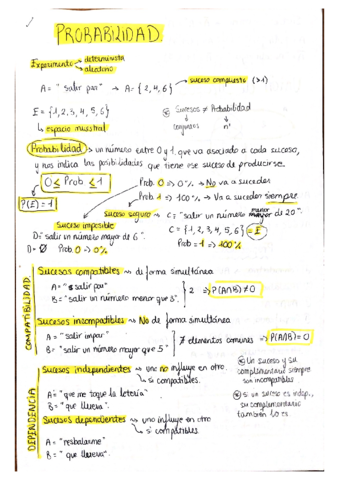 PROBABILIDAD
Experimento
determinista
aleatorio
A = "salir par" → A = {2, 4, 6}
suceso compuesto (>1)
E = {1, 2, 3, 4, 5, 6}
espacio muestral
Sucesos ≠ Probabilidad
conjuntos nº
Probabilidad → un número entre 0 y 1, que va asociado a cada suceso,
y nos indica las posibilidades que tiene ese suceso de producirse.
0 ≤ Prob ≤ 1
Prob. 0 => 0% → No va a suceder
Prob. 1 => 100% → Va a suceder siempre
P(E) = 1
Suceso seguro → C = "salir un número menor que 20"
Suceso imposible
C = {1, 2, 3, 4, 5, 6} = E
D = "salir un número mayor de 6"
Prob = 1 => 100%
D = Ø Prob. 0 => 0%
COMPATIBILIDAD
Sucesos compatibles → de forma simultánea
A = "salir par"
B = "salir un número menor que 3"
2 => P(A∩B) ≠ 0
Sucesos incompatibles → No de forma simultánea
A = "salir impar"
B = "salir un número mayor que 5"
∄ elementos comunes => P(A∩B) = 0
Un suceso y su
complementario siempre
son incompatibles
DEPENDENCIA
Sucesos independientes → uno no influye en otro.
si compatibles.
A = "que me toque la lotería"
B = "que llueva"
si un suceso es indep.,
su complementario
también lo es
Sucesos dependientes → uno influye en otro
si compatibles
A = "resbalarme"
B = "que llueva"